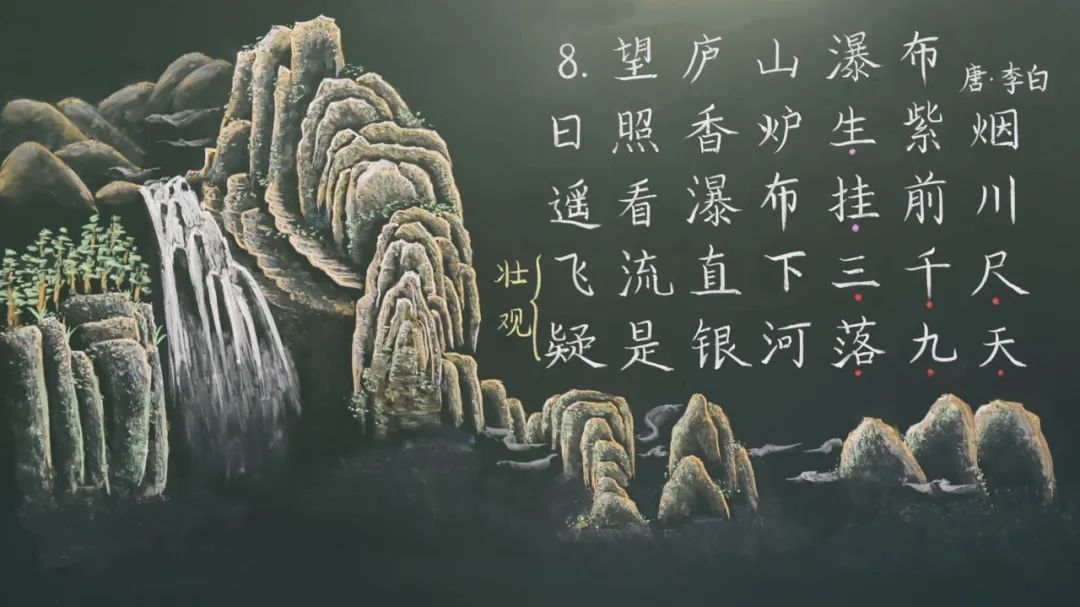 8. 望庐山瀑布
唐·李白
日照香炉生紫烟
遥看瀑布挂前川
飞流直下三千尺
疑是银河落九天
壮观